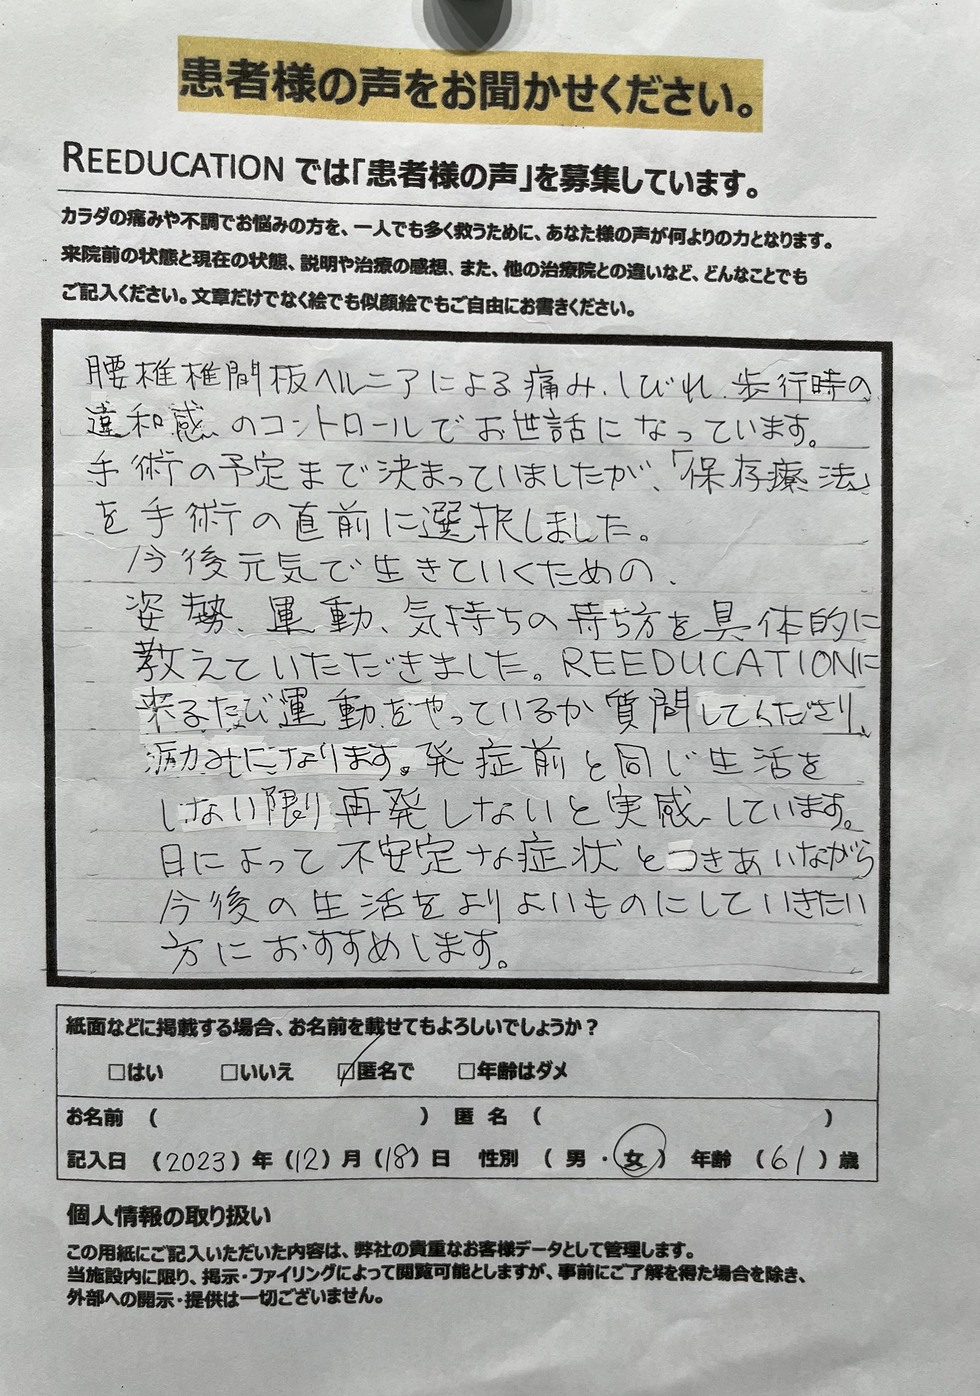 患者様の声をお聞かせください。
REEDUCATION では「患者様の声」を募集しています。
カラダの痛みや不調でお悩みの方を、一人でも多く救うために、あなた様の声が何よりの力となります。
来院前の状態と現在の状態、説明や治療の感想、また、他の治療院との違いなど、どんなことでも
ご記入ください。文章だけでなく絵でも似顔絵でもご自由にお書きください。
腰椎椎間板ヘルニアによる痛み、しびれ、歩行時の
違和感のコントロールでお世話になっています。
手術の予定まで決まっていましたが、「保存療法」
を手術の直前に選択しました。
今後元気で生きていくための、
姿勢、運動、気持ちの持ち方を具体的に
教えていただきました。REEDUCATIONに
来るたび運動をやっているか質問してくださり、
励みになります。発症前と同じ生活を
しない限り再発しないと実感しています。
日によって不安定な症状とつきあいながら
今後の生活をよりよいものにしていきたい
方におすすめします。
紙面などに掲載する場合、お名前を載せてもよろしいでしょうか？
□はい □いいえ ☑匿名で □年齢はダメ
お名前 （ ） 匿名 （ ）
記入日 （2023）年（12）月（18）日 性別 （ 男 ・ 女 ） 年齢 （61）歳
個人情報の取り扱い
この用紙にご記入いただいた内容は、弊社の貴重なお客様データとして管理します。
当施設内に限り、掲示・ファイリングによって閲覧可能としますが、事前にご了解を得た場合を除き、
外部への開示・提供は一切ございません。